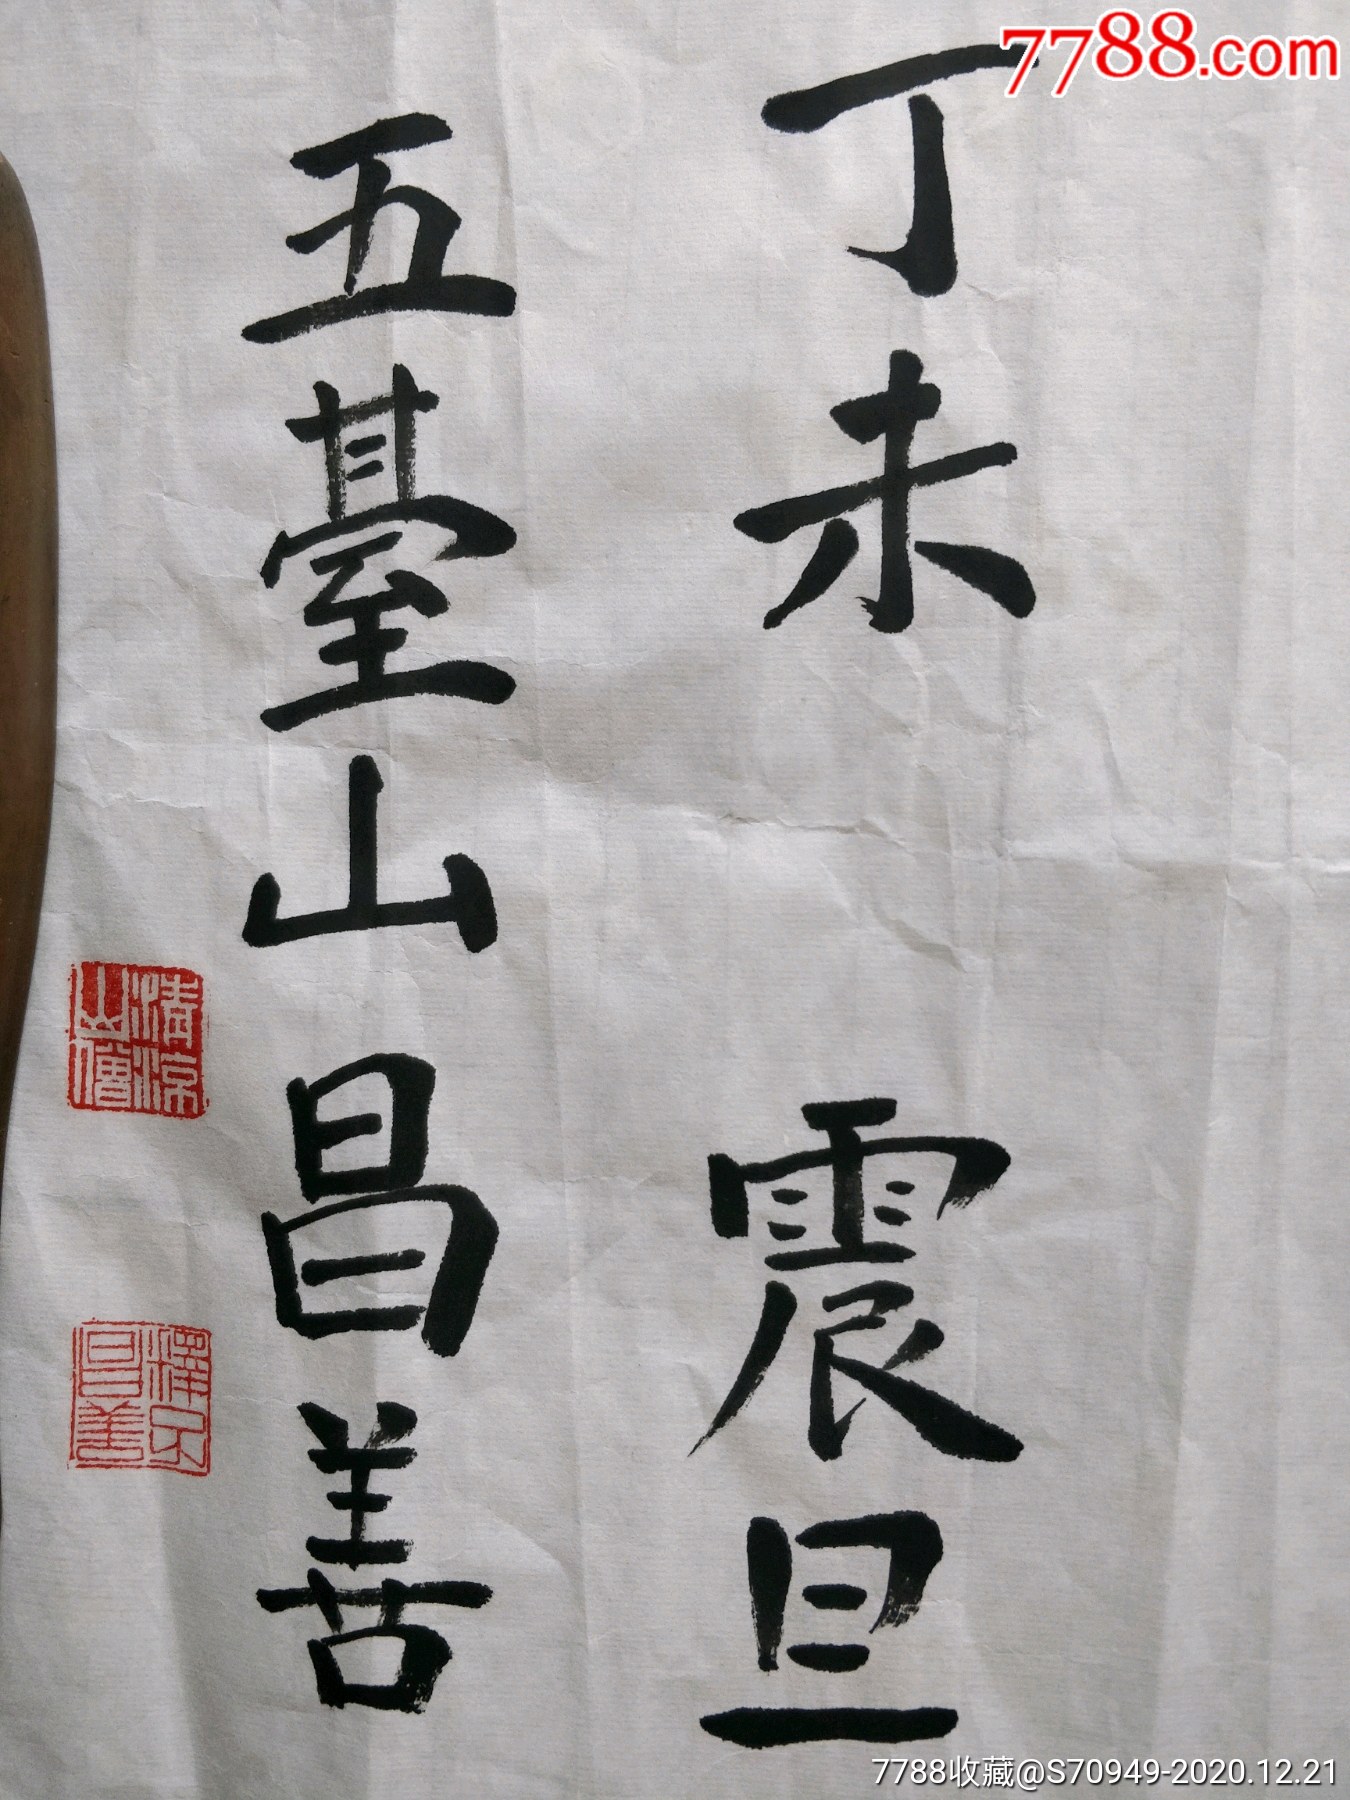 7788.com
丁未 震旦
五臺山昌善
清涼山僧
釋子昌善
7788收藏@S70949-2020.12.21